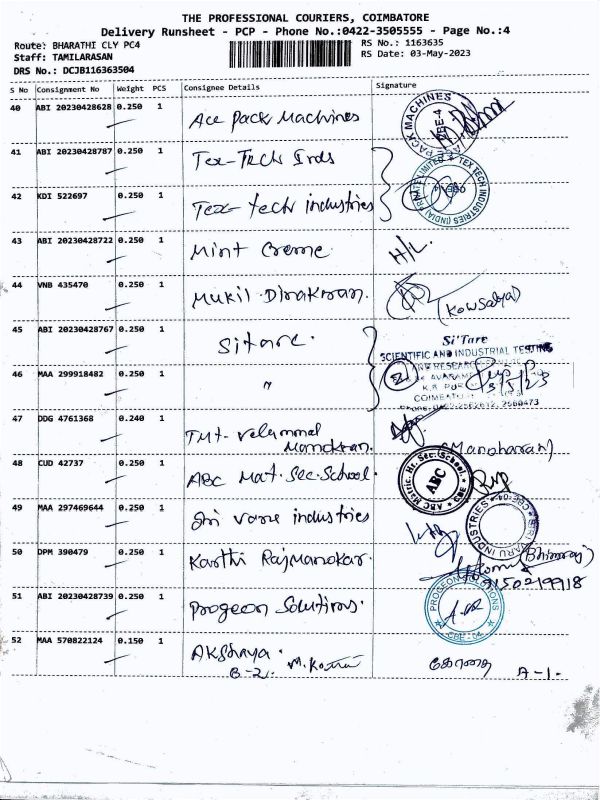 THE PROFESSIONAL COURIERS, COIMBATORE
Delivery Runsheet - PCP - Phone No.:0422-3505555 - Page No.:4
Route: BHARATHI CLY PC4
RS No.: 1163635
Staff: TAMILARASAN
RS Date: 03-May-2023
DRS No.: DCJB116363504
S No Consignment No Weight PCS Consignee Details Signature
40 ABI 20230428628 0.250 1 Ace Pack Machines
PACK MACHINES
41 ABI 20230428787 0.250 1 Tex-Tech Inds
42 KDI 522697 0.250 1 Tex-tech industries
TEX TECH INDUSTRIES (INDIA) PRIVATE LIMITED
43 ABI 20230428722 0.250 1 Mint Creme H/L.
44 VNB 435470 0.250 1 Mukil
45 ABI 20230428767 0.250 1 Sitare.
Si'Tare
SCIENTIFIC AND INDUSTRIAL TESTING
AND RESEARCH
46 MAA 299918482 0.250 1 "
2
3/5/23
COIMBATORE
47 DDG 4761368 0.240 1 TMt. Velammal
Manokran.
(Manoharan)
48 CUD 42737 0.250 1 ABC Mat. Sec. School.
ABC Matric. Hr. Sec. School. CBE
ABC
49 MAA 297469644 0.250 1 Sri Vare industries
INDUSTRIES
50 DPM 390479 0.250 1 Karthi Rajmanokar.
(Bhimraj)
9150219918
51 ABI 20230428739 0.250 1 Progeon Solutions.
PROGEON SOLUTIONS
52 MAA 570822124 0.150 1 Akshaya.
B-2. கோதை A-1-